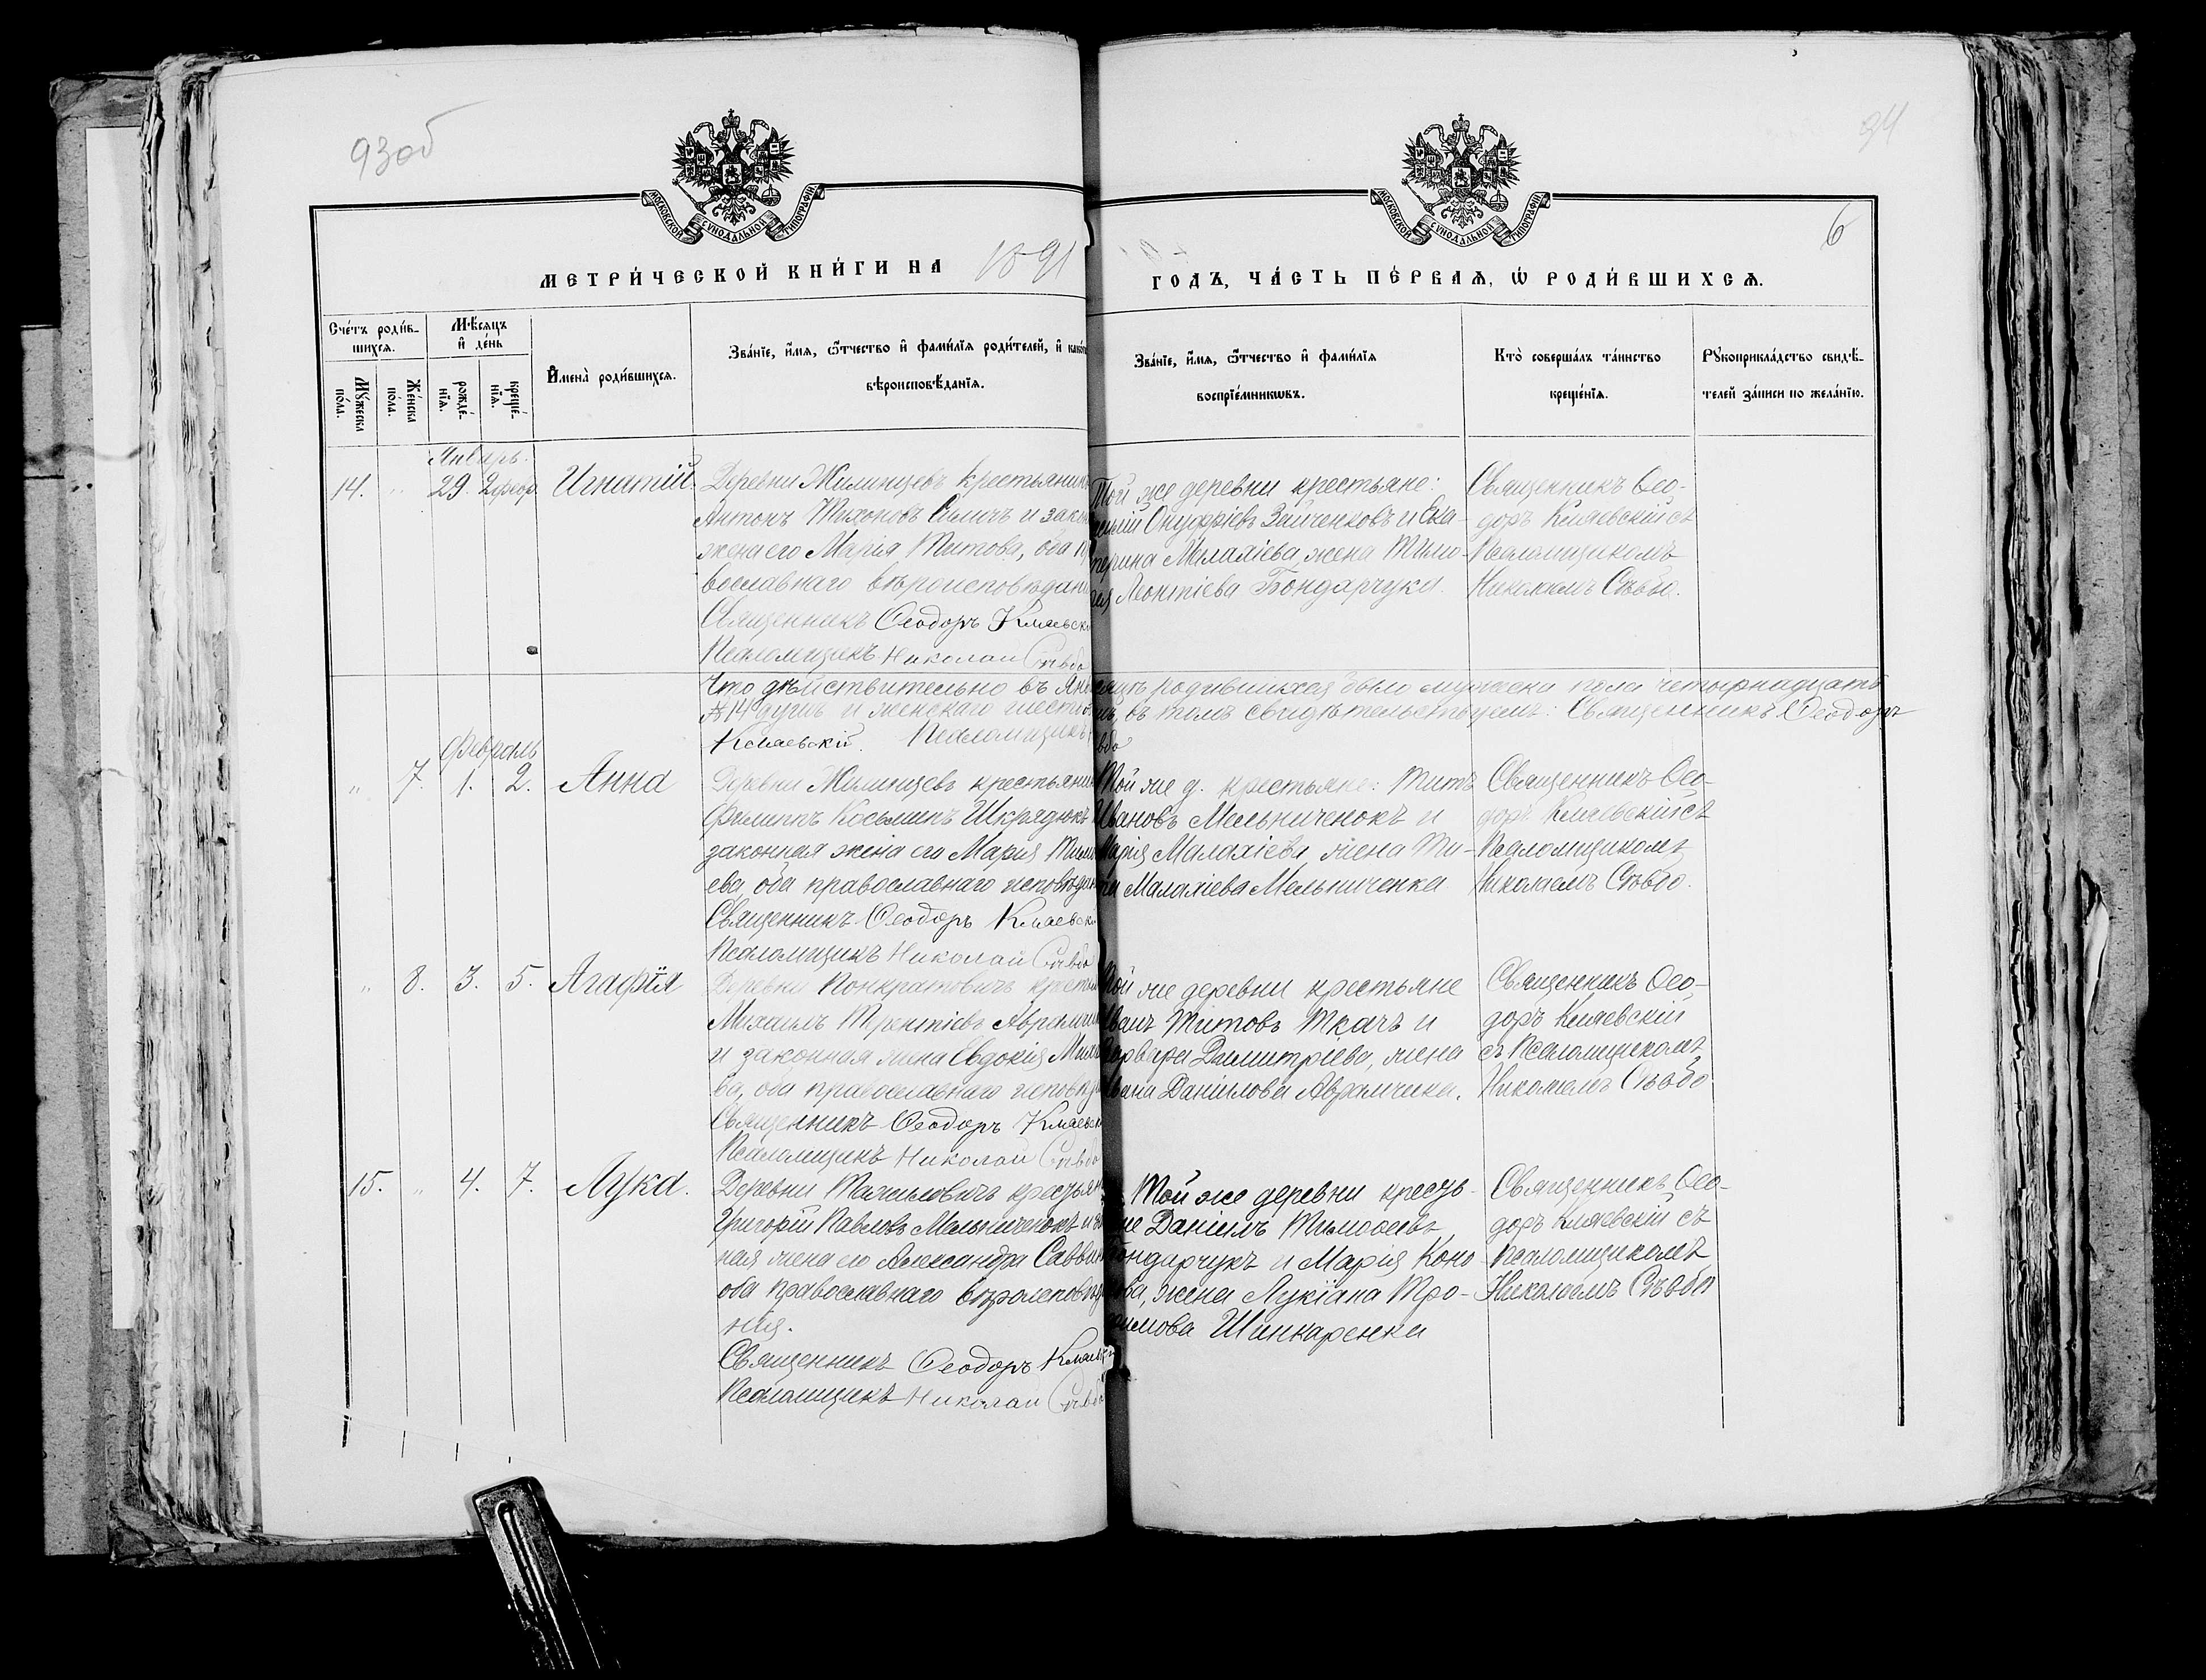 93об
94
6
МОСКОВСКОЙ СУНОДАЛЬНОЙ ТИПОГРАФІИ
МОСКОВСКОЙ СУНОДАЛЬНОЙ ТИПОГРАФІИ
МЕТРИ́ЧЕСКОЙ КНИ́ГИ НА 1891
ГОДЪ, ЧА́СТЬ ПЕ́РВАѦ, Ѽ РОДИ́ВШИХСѦ.
Сче́тъ роди́в-
шихсѧ.
Мꙋ́жеска
по́ла.
Же́нска
по́ла.
Мѣ́сѧцъ
и҆ де́нь
рожде́-
нїѧ.
креще́-
нїѧ.
И҆мена̀ роди́вшихсѧ.
Зва́нїе, и҆́мѧ, ѻ҆́тчество и҆ фами́лїѧ роди́телей, и҆ како́
вѣроисповѣ́данїѧ.
Зва́нїе, и҆́мѧ, ѻ҆́тчество и҆ фами́лїѧ
воспрїе́мникѡвъ.
Кто̀ соверша́лъ та́инство
креще́нїѧ.
Рꙋкоприкла́дство свидѣ́-
телей за́писи по жела́нїю.
Январь.
14. " 29. 2 февр. Игнатій.
Деревни Жилинцевъ крестьянинъ
Антонъ Тихоновъ и закон
жена его Марія Титова, оба пр
вославнаго вѣроисповѣдані
Священникъ Ѳеодоръ
Псаломщикъ Николай
Той же деревни крестьяне:
Онуфріевъ Зайченковъ и Ека-
терина Малахіева, жена Тимо-
Леонтіева Бондарчука.
Священникъ Ѳео-
доръ съ
Псаломщикомъ
Николаемъ
Что дѣйствительно въ Янв
сяцѣ родившихся было мужеска пола четырнадцать
14 душъ и женскаго шесть
въ томъ свидѣтельствуемъ: Священникъ Ѳеодоръ
Псаломщикъ
Февраль
" 7. 1. 2. Анна
Деревни Жилинцевъ крестьянин
Филиппъ Косьминъ Шкрядюкъ
законная жена его Марія Тимо
ева, оба православнаго исповѣдан
Священникъ Ѳеодоръ
Псаломщикъ Николай
Той же д. крестьяне: Титъ
Ивановъ Мельниченокъ и
Марія Малахіева, жена Ти-
Малахіева Мельниченка
Священникъ Ѳео-
доръ съ
Псаломщикомъ
Николаемъ
" 8. 3. 5. Агафія
Деревни Понкратовичъ крестьян
Михаилъ Трентіевъ Аврамчи
и законная жена Евдокія
ва, оба православнаго исповѣд
Священникъ Ѳеодоръ
Псаломщикъ Николай
Той же деревни крестьяне
Иванъ Титовъ Ткачъ и
Варвара Димитріева, жена
Ивана Даніилова Аврамчика.
Священникъ Ѳео-
доръ
съ Псаломщикомъ
Николаемъ
15. " 4. 7. Лука.
Деревни крестьян
Григорій Павловъ Мельниченокъ и за
ная жена его Александра Савви
оба православнаго вѣроисповѣд
нія.
Священникъ Ѳеодоръ
Псаломщикъ Николай
Той же деревни кресть-
не Даніилъ Тимоѳеевъ
Бондарчукъ и Марія Коно
ва, жена Лукіана Тро-
фимова Шинкаренка
Священникъ Ѳео-
доръ съ
Псаломщикомъ
Николаемъ